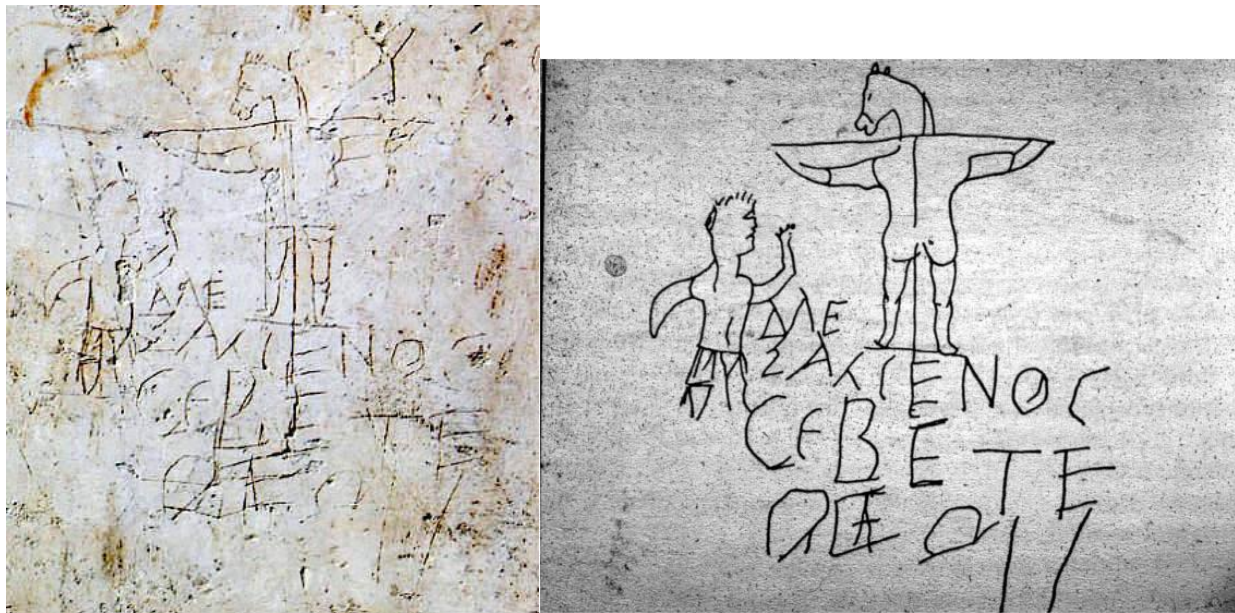 ΑΛΕ
ΞΑΜΕΝΟС
СΕΒΕΤΕ
ΘΕΟΝ
ΑΛΕ
ΞΑΜΕΝΟС
СΕΒΕΤΕ
ΘΕΟΝ